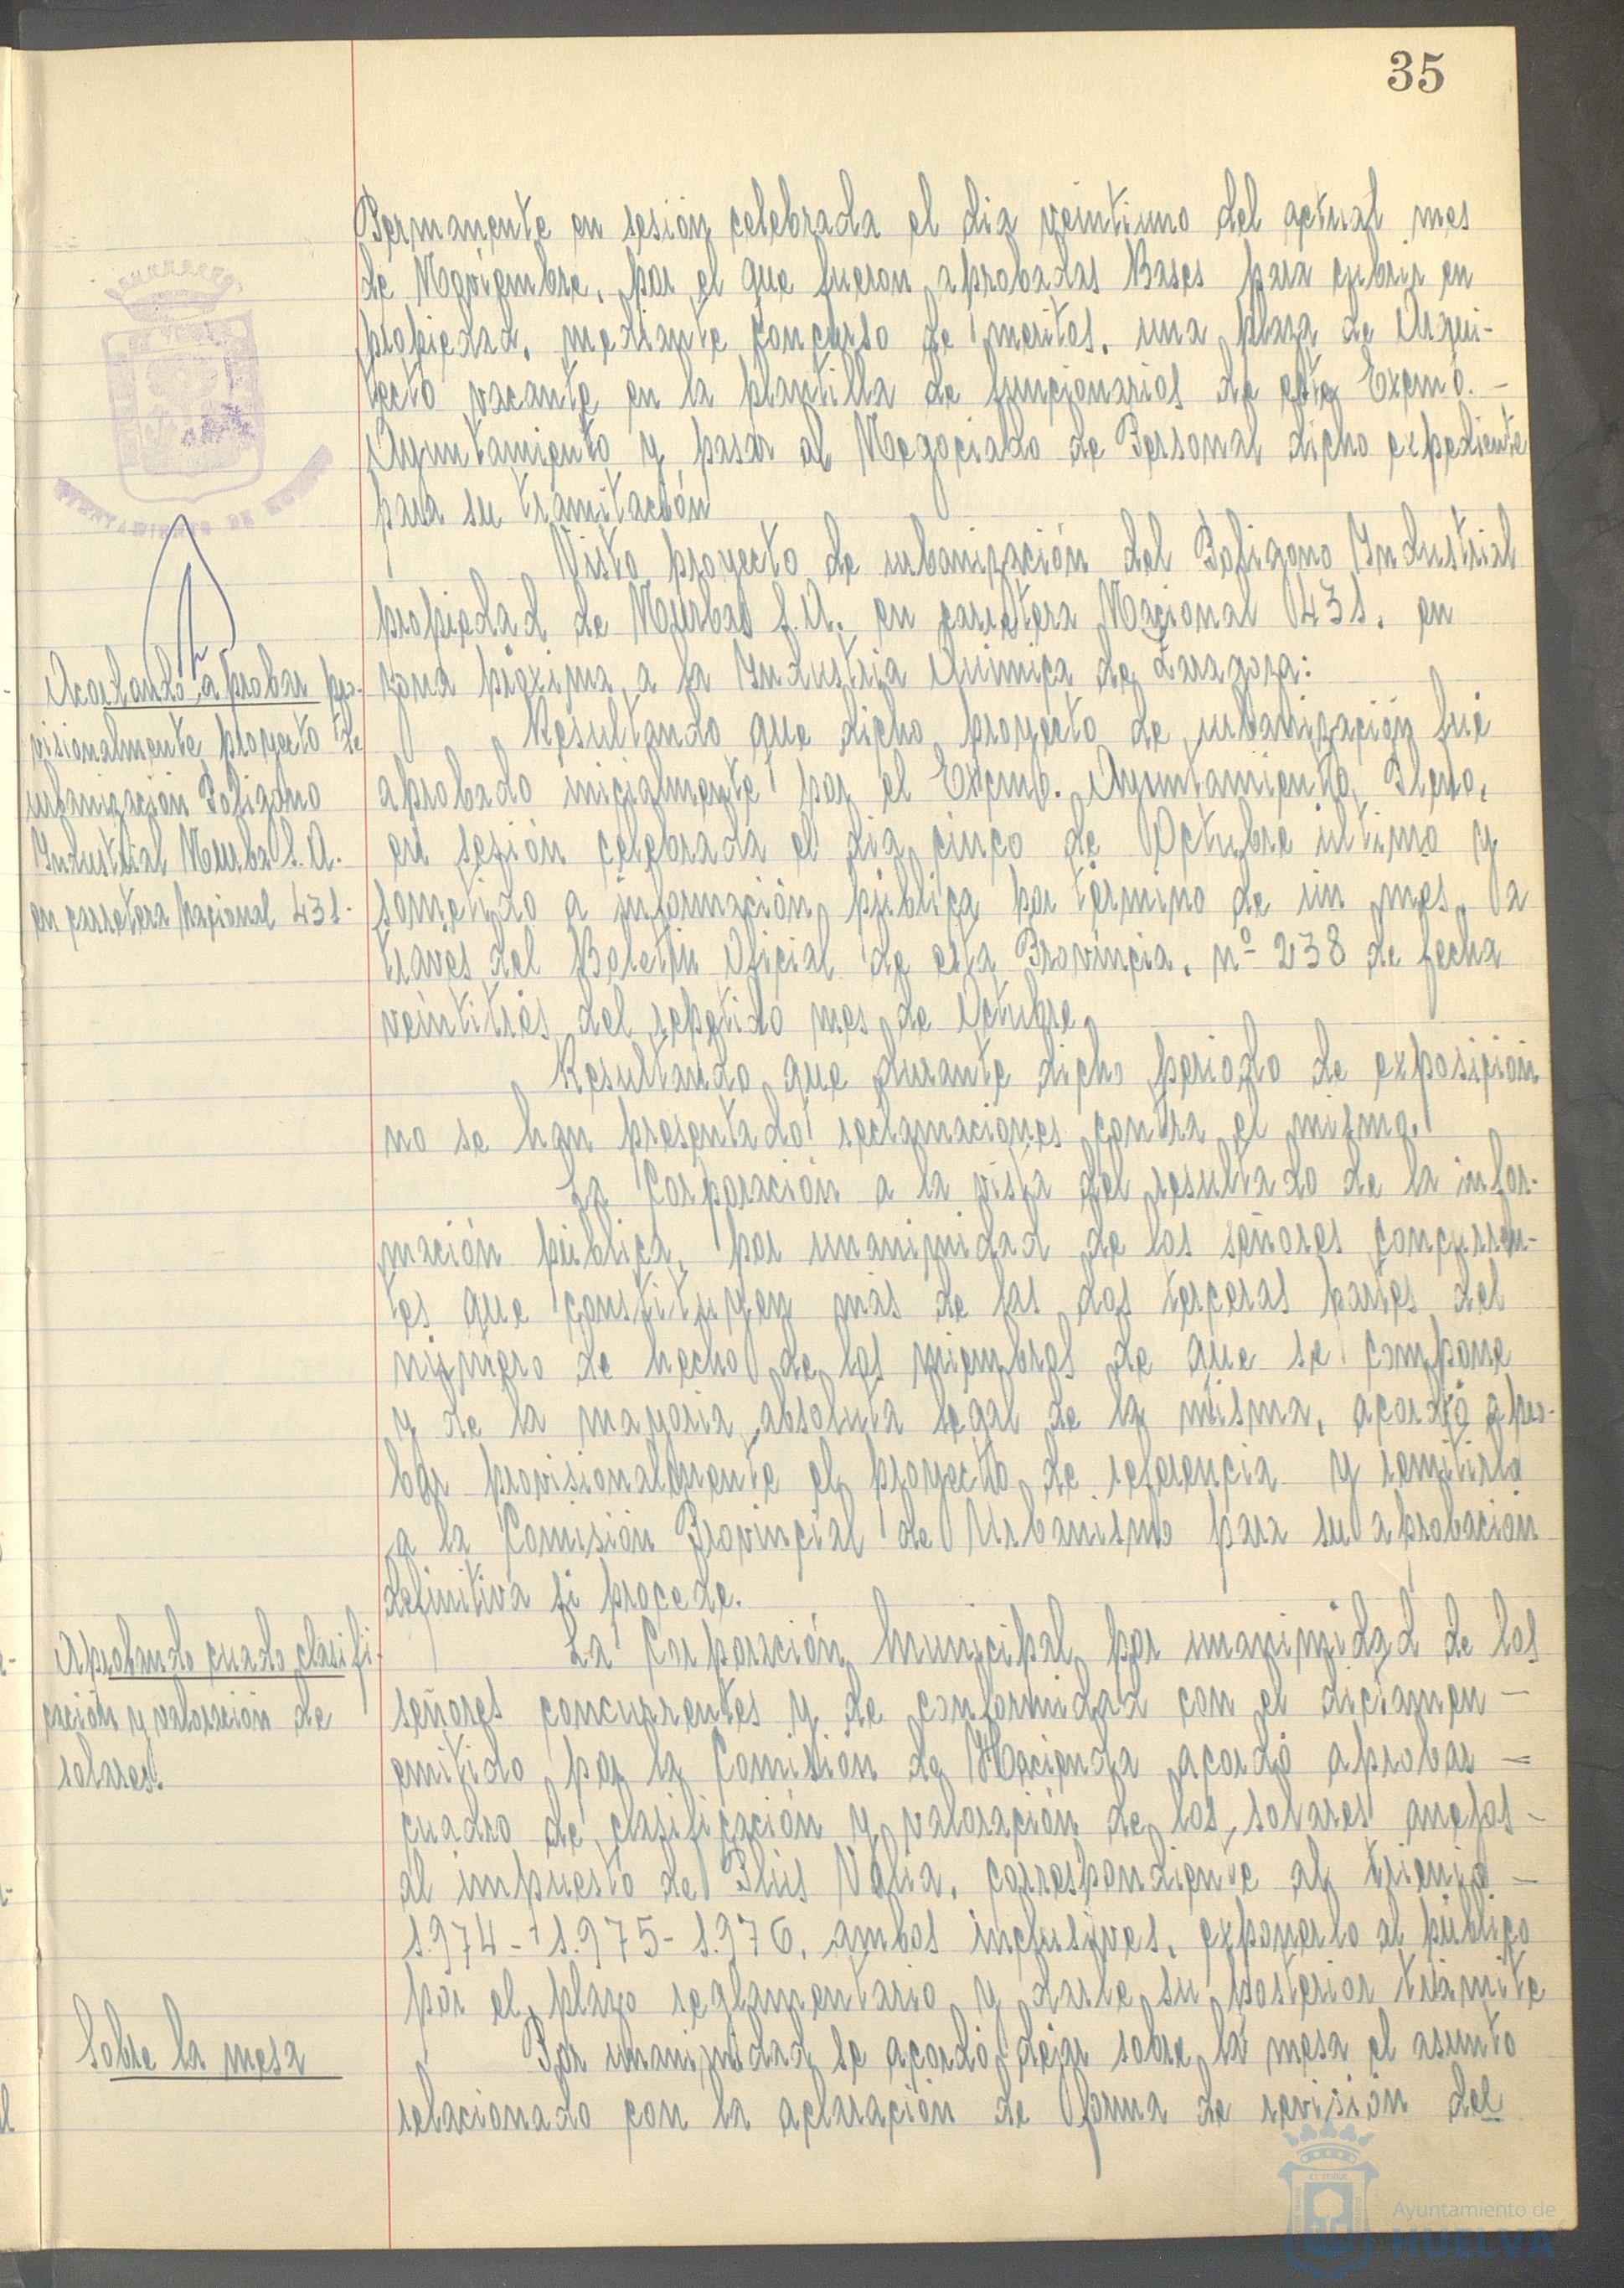 35
Permanente en sesión celebrada el dia veintiuno del actual mes
de Noviembre, por el que fueron aprobadas Bases para cubrir en
propiedad, mediante concurso de meritos, una plaza de Arqui-
tecto vacante en la plantilla de funcionarios de este Excmo. -
Ayuntamiento y pasar al Negociado de Personal dicho expediente
para su tramitación
Visto proyecto de urbanización del Poligono Industrial
propiedad de Naurbas S.A. en carretera Nacional 431, en
zona próxima a la Industria Quimica de Zaragoza:
Acordando aprobar pro-
visionalmente proyecto de
urbanización Poligono
Industrial S.A.
en carretera Nacional 431-
Resultando que dicho proyecto de urbanización fué
aprobado inicialmente por el Excmo. Ayuntamiento Pleno,
en sesión celebrada el dia cinco de Octubre último y
sometido a información pública por término de un mes, a
traves del Boletin Oficial de esta Provincia, nº 238 de fecha
veintitrés del repetido mes de Octubre.
Resultando que durante dicho periodo de exposición
no se han presentado reclamaciones contra el mismo.
La Corporación a la vista del resultado de la infor-
mación pública, por unanimidad de los señores concurren-
tes que constituyen más de las dos terceras partes del
número de hecho de los miembros de que se compone
y de la mayoria absoluta legal de la misma, acordó apro-
bar provisionalmente el proyecto de referencia y remitirlo
a la Comisión Provincial de Urbanismo para su aprobación
definitiva si procede.
Aprobando cuadro clasifi-
cación y valoración de
solares.
La Corporación Municipal por unanimidad de los
señores concurrentes y de conformidad con el dictamen -
emitido por la Comisión de Hacienda acordó aprobar -
cuadro de clasificación y valoración de los solares anejos -
al impuesto de Plus Valia, correspondiente al trienio -
1.974 - 1.975 - 1.976, ambos inclusives, exponerlo al público
por el plazo reglamentario y darle su posterior trámite
Sobre la mesa
Por unanimidad se acordó dejar sobre la mesa el asunto
relacionado con la aclaración de forma de revisión del
Ayuntamiento de
HUELVA